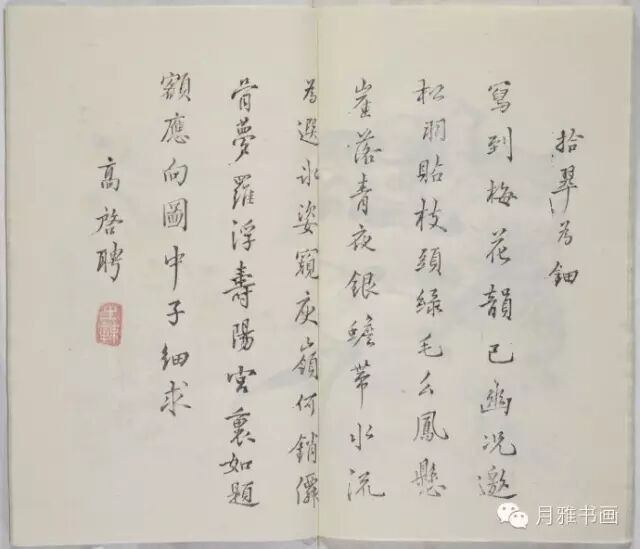 拾翠為鈿
寫到梅花韻已幽況邀
松羽貼枝頭綠毛么鳳懸
崖落青夜銀蟾帶水流
為逞冰姿窺庾嶺何銷僊
骨夢羅浮壽陽宮裏如題
額應向圖中子細求
高啓聘
月雅书画